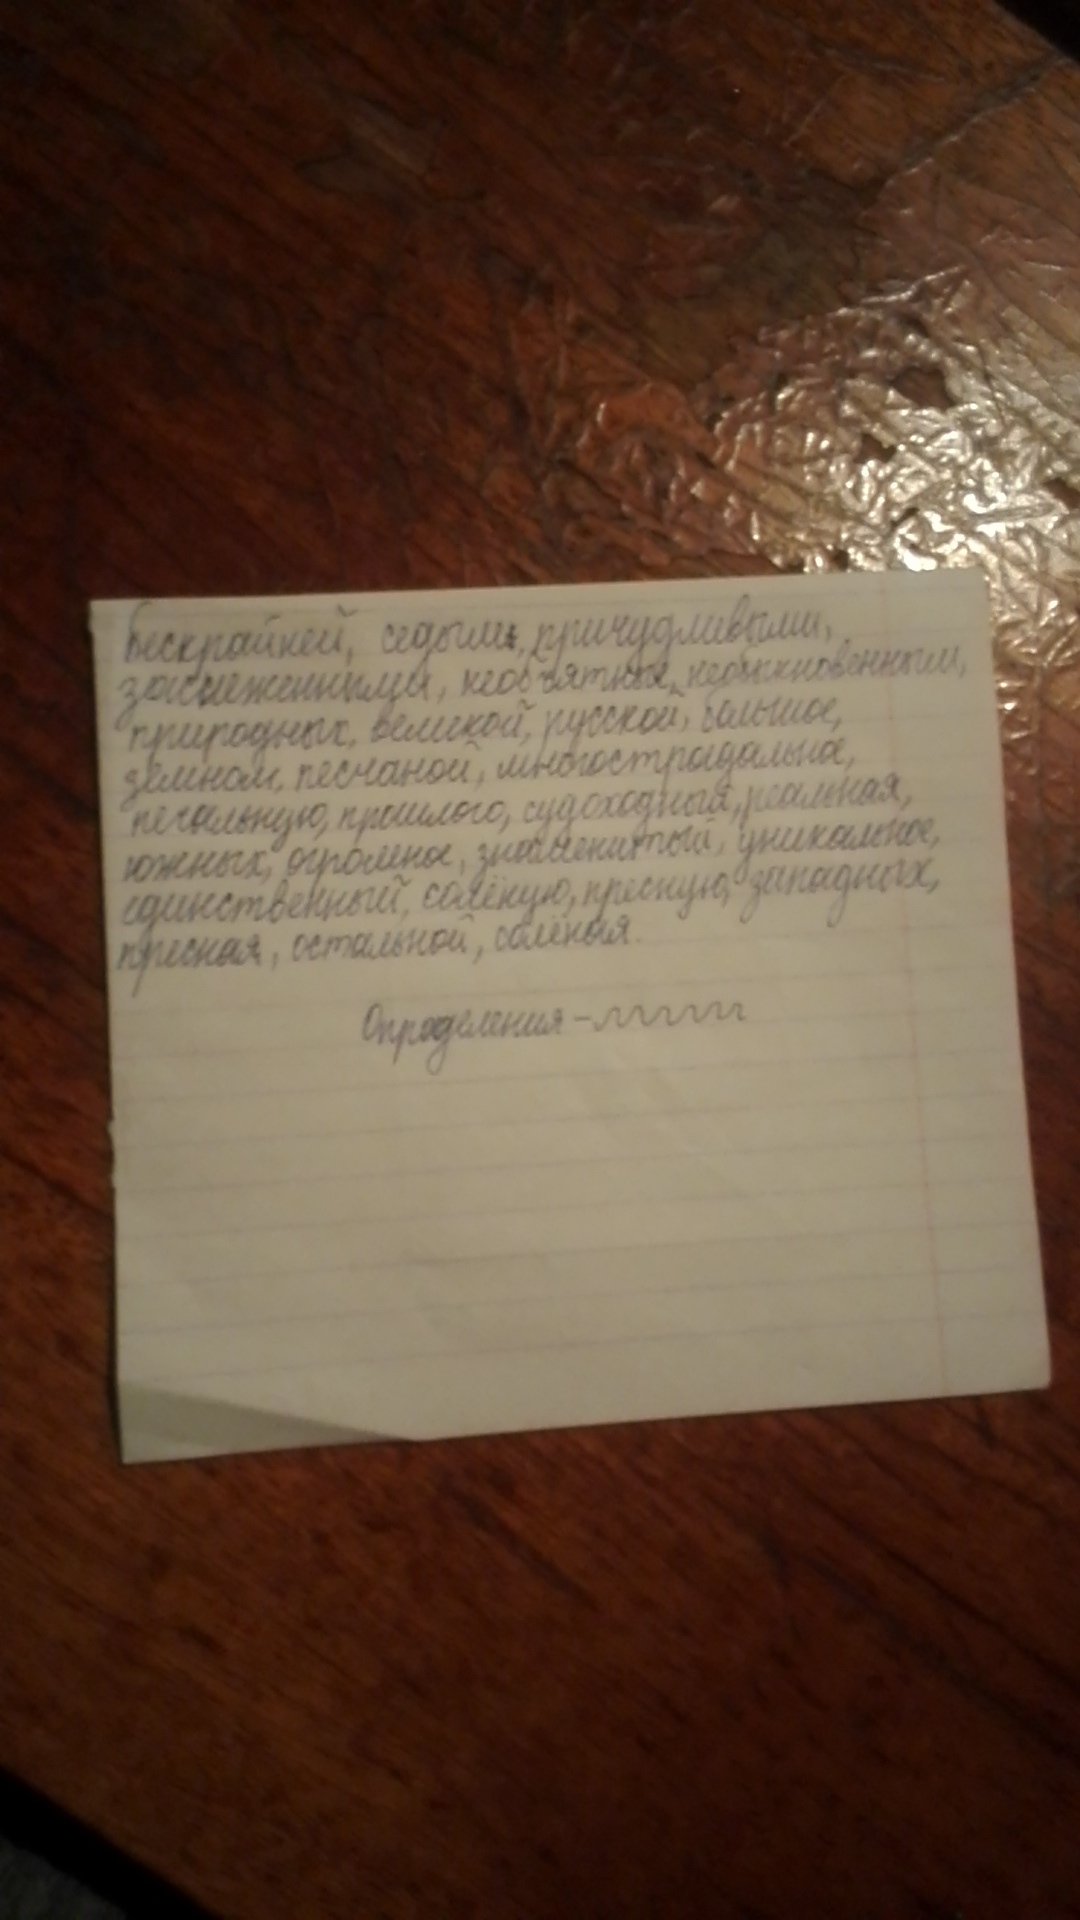 Бескрайней, седыми, причудливыми,
заснеженными, необъятные, необыкновенным,
природных, великой, русской, большое,
земном, песчаной, многострадальна,
печальную, прошлого, судоходный, реальная,
южных, огромное, знаменитый, уникальное,
единственный, солёную, пресную, западных,
пресная, остальной, солёная.
Определения -